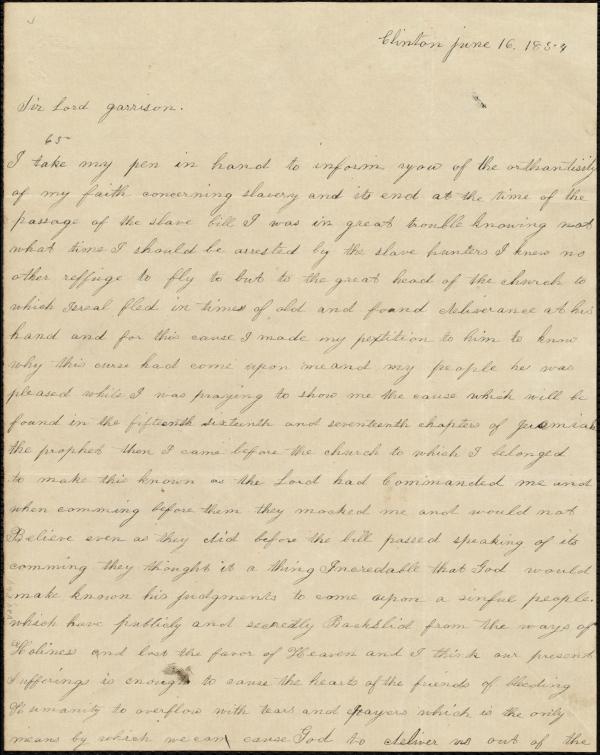 Clinton June 16, 1854
Sir Lord Garrison.
65
I take my pen in hand to inform yow of the orthantisity
of my faith concerning slavery and its end at the time of the
passage of the slave bill I was in great trouble knowing not
what time I should be arrested by the slave hunters I knew no
other reffuge to fly to but to the great head of the church to
which Isreal fled in times of old and found deliverance at his
hand and for this cause I made my petition to him to know
why this curse had come upon me and my people he was
pleased while I was praying to show me the cause which will be
found in the fifteenth sixteenth and seventeenth chapters of Jeremiah
the prophet then I came before the church to which I belonged
to make this known as the Lord had Commanded me and
when comming before them they mocked me and would not
Believe even as they did before the bill passed speaking of its
comming they thought it a thing Incredable that God would
make known his judgments to come upon a sinful people.
which have publicly and secredly Backslid from the ways of
Holiness and lost the favor of Heaven and I think our present
Sufferings is enough to cause the hearts of the friends of bleeding
Humanity to overflow with tears and prayers which is the only
means by which we can cause God to deliver us out of the